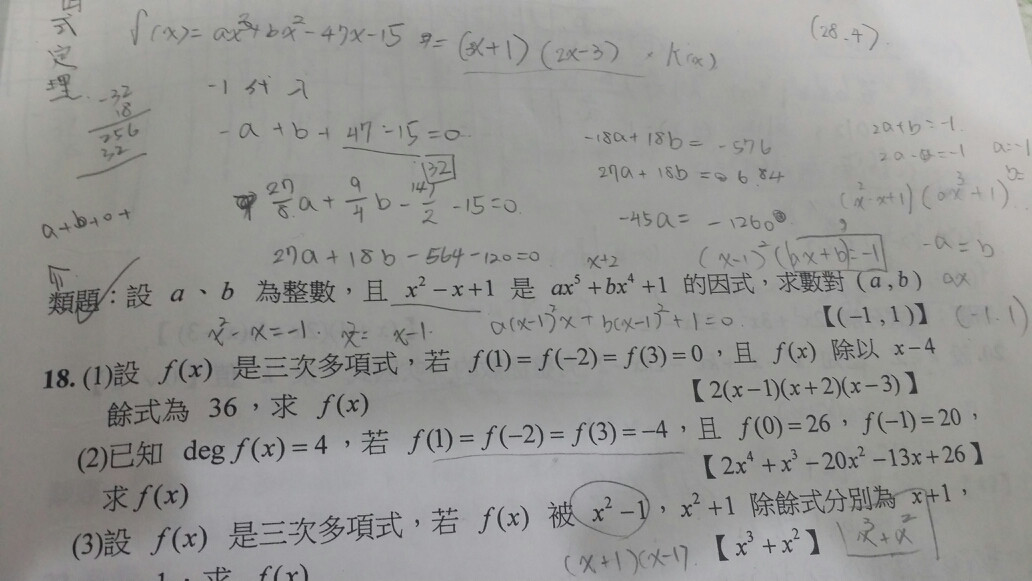 式
定
理
f(x)=ax³+bx²-47x-15 = (x+1)(2x-3)·k(x)
(28.4)
-1 代入
-32
18
256
32
-a+b+47-15=0
32
-18a+18b=-576
2a+b=-1
27/8 a+9/4 b-141/2-15=0
-45a=-1260
27a+18b-564-120=0
-a=b
類題：設 a、b 為整數，且 x²-x+1 是 ax⁵+bx⁴+1 的因式，求數對 (a,b)
x²-x=-1 x²= x-1
a(x-1)²x+b(x-1)²+1=0
【(-1,1)】
(-1.1)
18. (1)設 f(x) 是三次多項式，若 f(1)=f(-2)=f(3)=0，且 f(x) 除以 x-4
餘式為 36，求 f(x) 【2(x-1)(x+2)(x-3)】
(2)已知 deg f(x)=4，若 f(1)=f(-2)=f(3)=-4，且 f(0)=26，f(-1)=20，
求 f(x) 【2x⁴+x³-20x²-13x+26】
(3)設 f(x) 是三次多項式，若 f(x) 被 x²-1，x²+1 除餘式分別為 x+1，
(x+1)(x-1) 【x³+x²】 x³+x²
求 f(x)